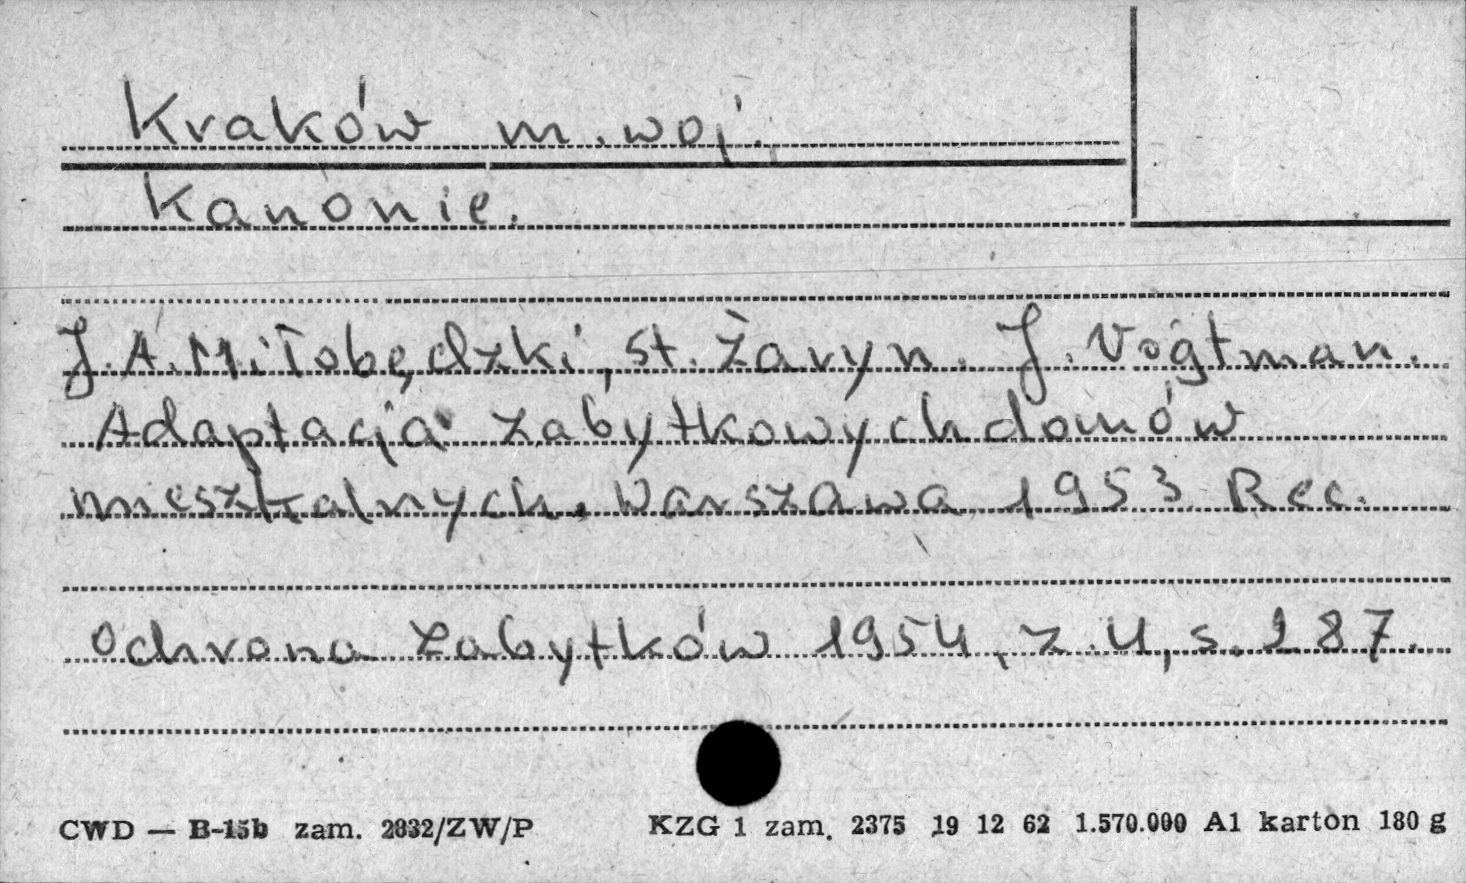 Kraków m. woj.
Kanonie.
J. A. Miłobędzki, St. Żaryn. J. Vogtman.
Adaptacja zabytkowych domów
mieszkalnych. Warszawa 1953 Rec.
Ochrona Zabytków 1954, z. 4, s. 287.
CWD — B-15b zam. 2832/ZW/P KZG 1 zam. 2375 19 12 62 1.570.000 A1 karton 180 g